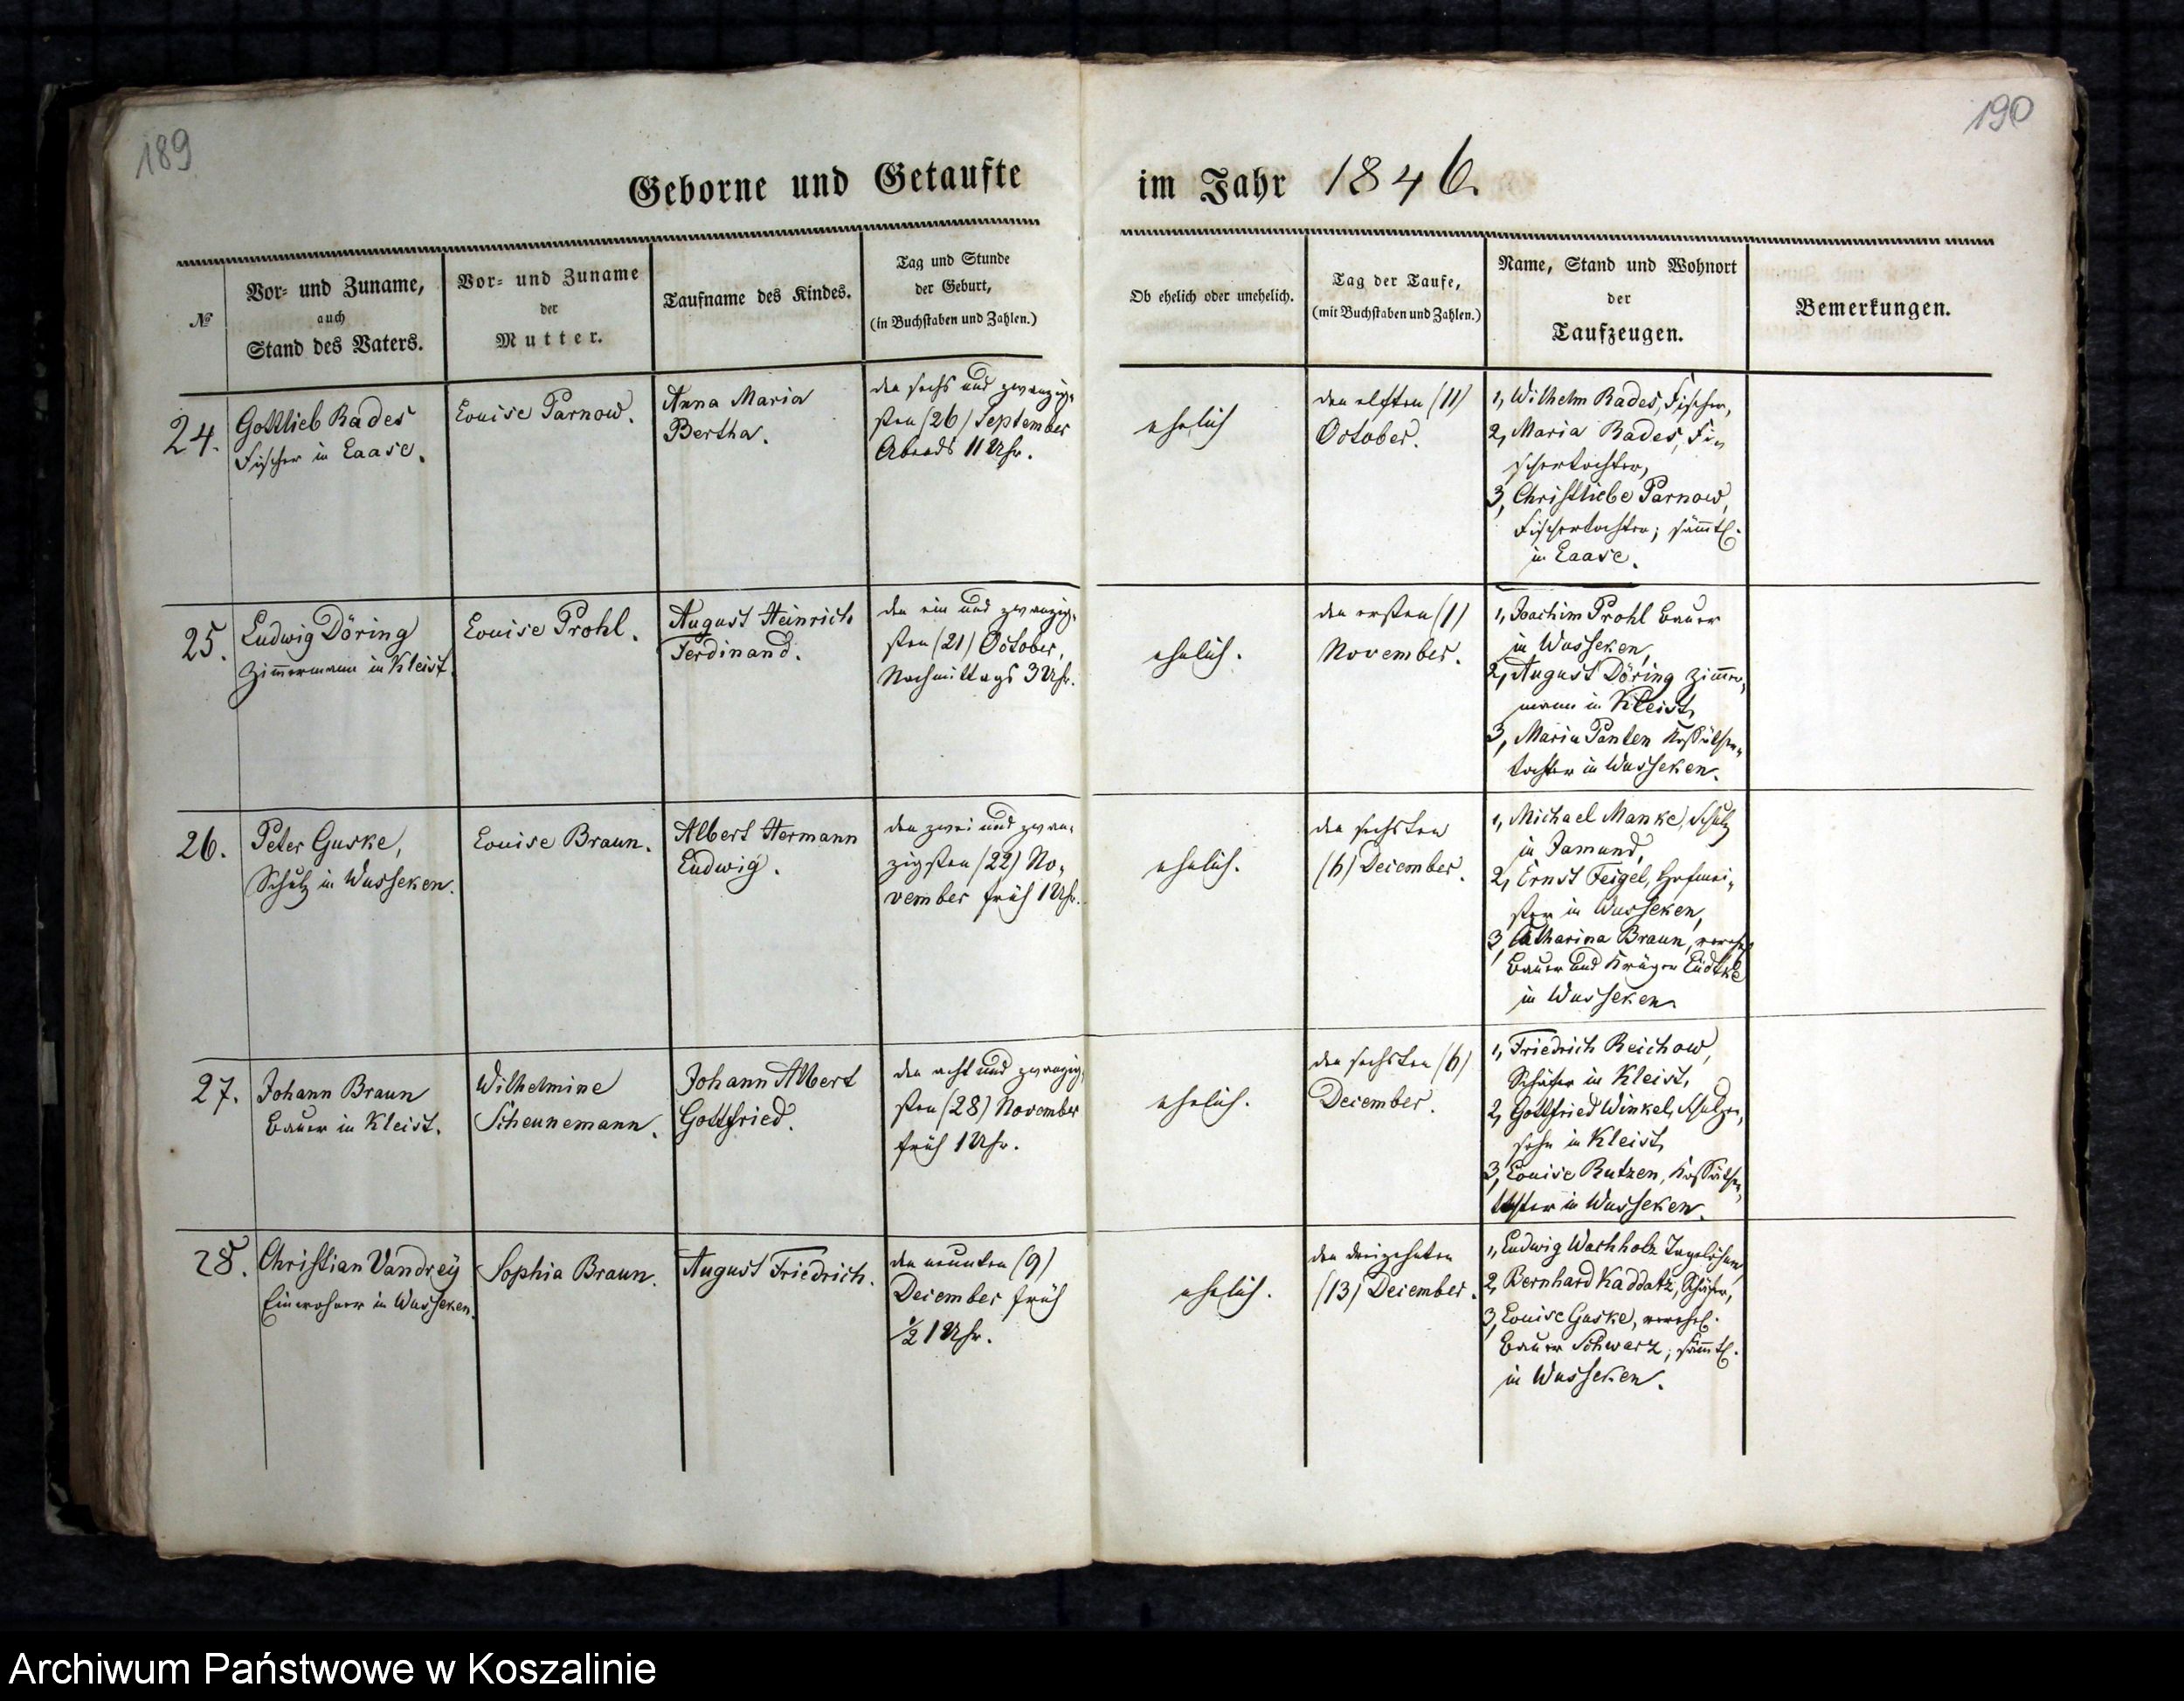 189
190
Geborne und Getaufte
im Jahr 1846.
№
Vor- und Zuname,
auch
Stand des Vaters.
Vor- und Zuname
der
Mutter.
Taufname des Kindes.
Tag und Stunde
der Geburt,
(in Buchstaben und Zahlen.)
Ob ehelich oder unehelich.
Tag der Taufe,
(mit Buchstaben und Zahlen.)
Name, Stand und Wohnort
der
Taufzeugen.
Bemerkungen.
24.
Gottlieb Rades
Fischer in Laase.
Louise Parnow.
Anna Maria
Bertha.
den sechs und zwanzig-
sten (26) September
Abends 11 Uhr.
ehelich
den elften (11)
October.
1, Wilhelm Rades, Fischer,
2, Maria Rades, Fi-
schertochter,
3, Christliebe Parnow,
Fischertochter; sämmtl.
in Laase.
25.
Ludwig Döring
Zimmermann in Kleist.
Louise Prohl.
August Heinrich
Ferdinand.
den ein und zwanzig-
sten (21) October,
Nachmittags 3 Uhr.
ehelich.
den ersten (1)
November.
1, Joachim Prohl Bauer
in Wusseken,
2, August Döring Zimmer-
mann in Kleist,
3, Maria Panten Kossäthen-
tochter in Wusseken.
26.
Peter Guske,
Schulz in Wusseken.
Louise Braun.
Albert Hermann
Ludwig.
den zwei und zwan-
zigsten (22) No-
vember früh 1 Uhr.
ehelich.
den sechsten
(6) December.
1, Michael Manke, Schulz
in Jamund,
2, Ernst Feigel, Hofmei-
ster in Wusseken,
3, Catharina Braun, verehel.
Bauer und Krüger Lüdtke
in Wusseken.
27.
Johann Braun
Bauer in Kleist.
Wilhelmine
Scheunemann.
Johann Albert
Gottfried.
den acht und zwanzig-
sten (28) November
früh 1 Uhr.
ehelich.
den sechsten (6)
December.
1, Friedrich Reichow,
Schäfer in Kleist,
2, Gottfried Winkel, Schulzen-
sohn in Kleist,
3, Louise Rutzen, Kossäthen-
tochter in Wusseken.
28.
Christian Vandrey
Einwohner in Wusseken.
Sophia Braun.
August Friedrich.
den neunten (9)
December früh
½ 1 Uhr.
ehelich.
den dreizehnten
(13) December.
1, Ludwig Wachholz Tagelöhner,
2, Bernhard Kaddatz, Schäfer,
3, Louise Guske, verehel.
Bauer Schwarz; sämmtl.
in Wusseken.
Archiwum Państwowe w Koszalinie